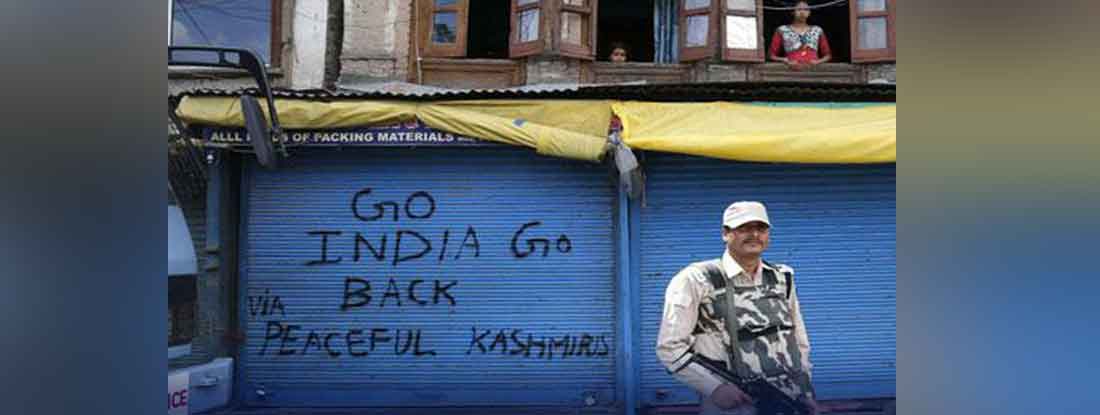 ALLL KINDS OF PACKING MATERIALS
GO
INDIA GO
BACK
VIA
PEACEFUL KASHMIRIS
ICE